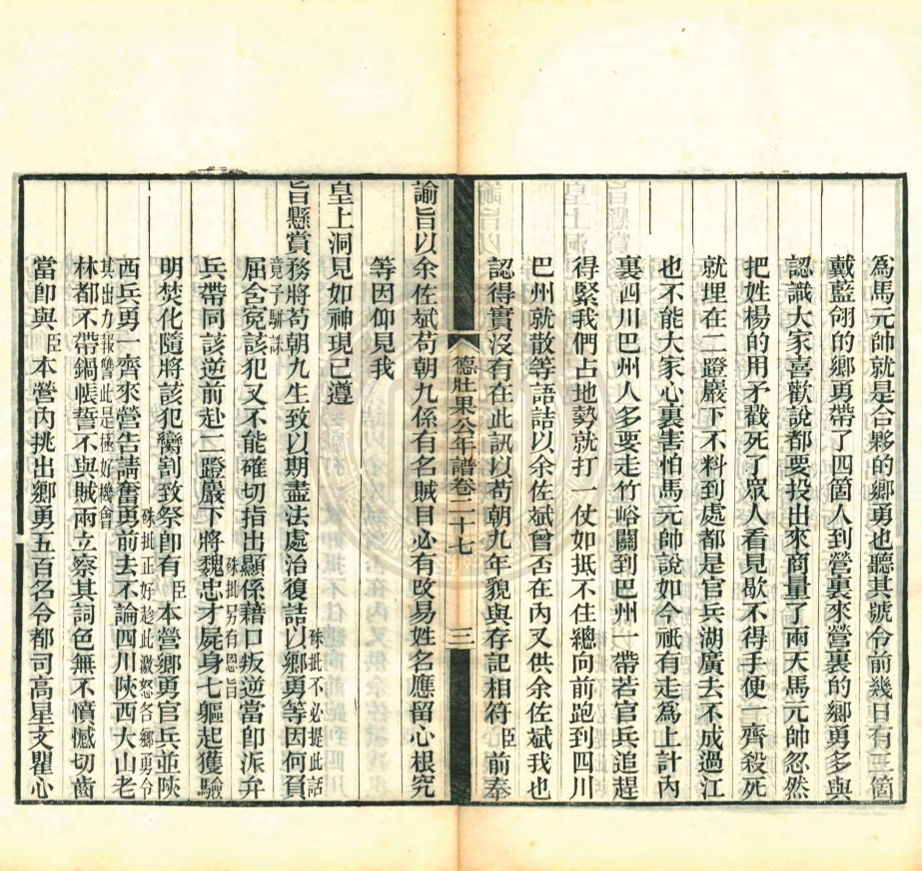 為馬元帥就是合夥的鄉勇也聽其號令前幾日有三箇
戴藍翎的鄉勇帶了四箇人到營裏來營裏的鄉勇多與
認識大家喜歡說都要投出來商量了兩天馬元帥忽然
把姓楊的用矛戳死了眾人看見歇不得手便一齊殺死
就埋在二蹬巖下不料到處都是官兵湖廣去不成過江
也不能大家心裏害怕馬元帥說如今祗有走為上計內
裏四川巴州人多要走竹峪關到巴州一帶若官兵追趕
得緊我們占地勢就打一仗如抵不住總向前跑到四川
巴州就散等語詰以余佐斌曾否在內又供余佐斌我也
認得實沒有在此訊以苟朝九年貌與存記相符臣前奉
德壯果公年譜卷二十七 三
諭旨以余佐斌苟朝九係有名賊目必有改易姓名應留心根究
等因仰見我
皇上洞見如神現已遵
旨懸賞務將苟朝九生致以期盡法處治復詰以鄉勇等因何負
硃批不必提此話
竟予駢誅
屈含冤該犯又不能確切指出顯係藉口叛逆當即派弁
硃批另有恩旨
兵帶同該逆前赴二蹬巖下將魏忠才屍身七軀起獲驗
明焚化隨將該犯臠割致祭即有臣本營鄉勇官兵並陝
硃批正好趁此激怒各鄉勇令
其出力報讐此是極好機會
西兵勇一齊來營告請奮勇前去不論四川陝西大山老
林都不帶鍋帳誓不與賊兩立察其詞色無不憤憾切齒
當即與臣本營內挑出鄉勇五百名令都司高星文瞿心